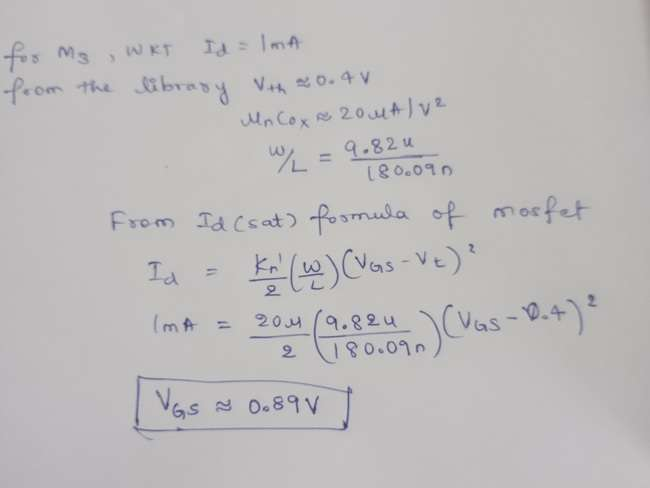 for M3, WKT Id = 1mA
from the library Vth ≈ 0.4V
MnCox ≈ 20uA/V²
W/L = 9.82u/180.09n
From Id(sat) formula of mosfet
Id = Kn'/2 (W/L) (VGS - Vt)²
1mA = 20u/2 (9.82u/180.09n) (VGS - 0.4)²
VGS ≈ 0.89V